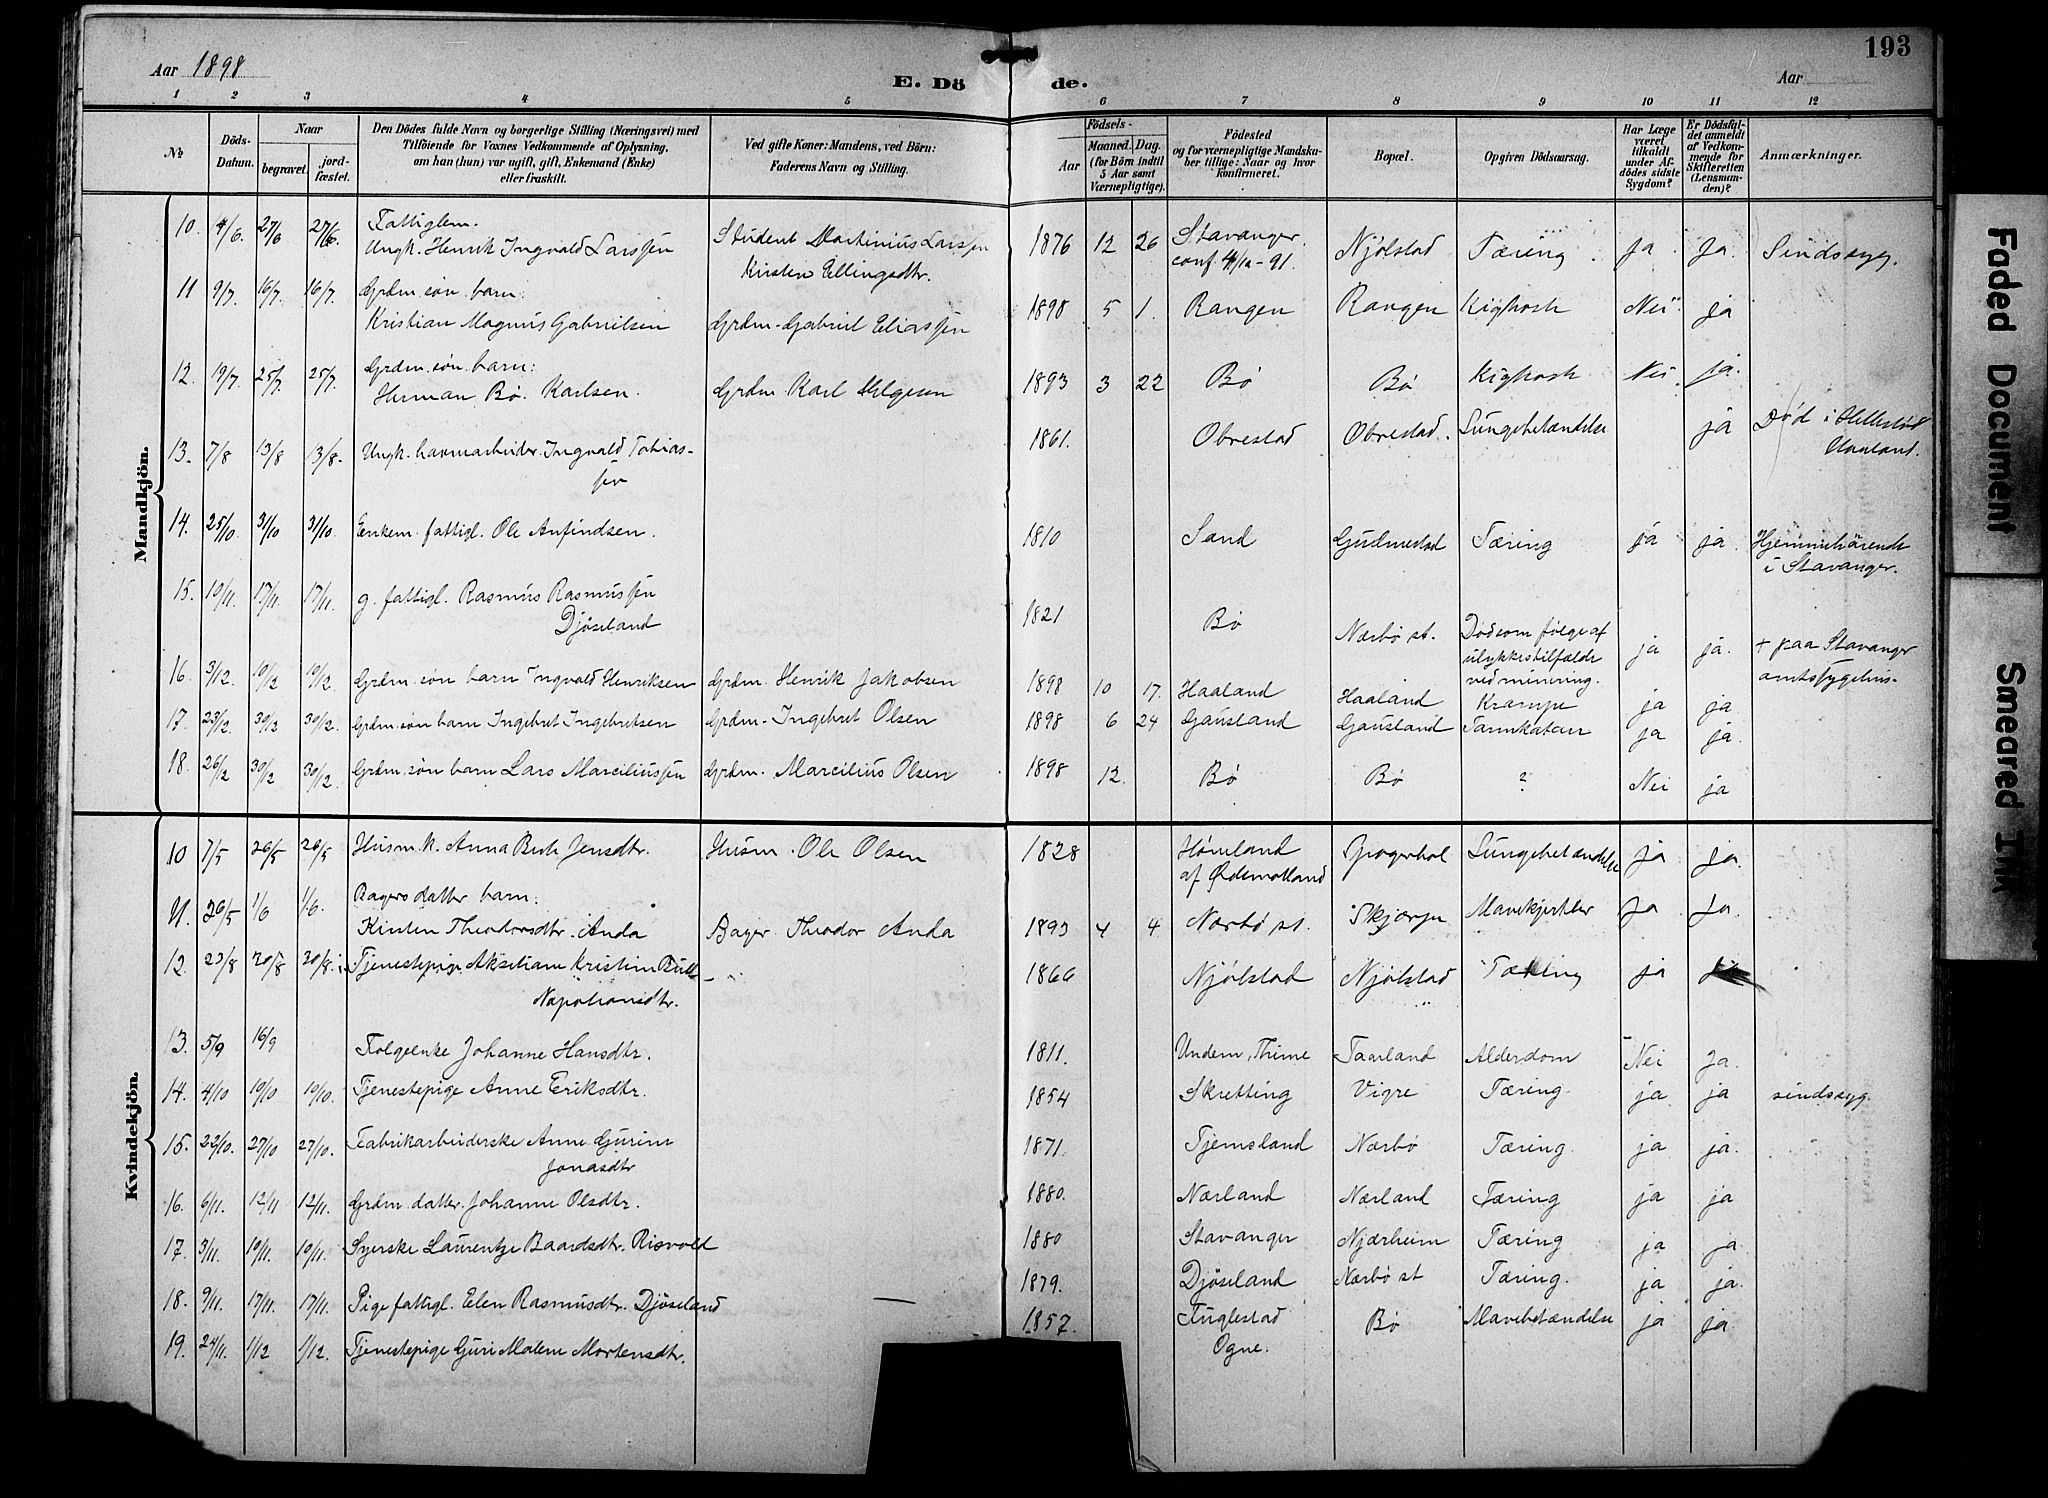 193
Aar 1898
E. Dö de.
Aar
1 2 3 4 5 6 7 8 9 10 11 12
№
Döds-Datum.
Naar
begravet.
jord-fæstet.
Den Dödes fulde Navn og borgerlige Stilling (Næringsvei) med
Tilföiende for Voxnes Vedkommende af Oplysning,
om han (hun) var ugift, gift, Enkemand (Enke)
eller fraskilt.
Ved gifte Koner: Mandens, ved Börn:
Faderens Navn og Stilling.
Födsels-
Aar
Maaned. Dag.
(for Börn indtil
5 Aar samt
Værnepligtige).
Födested
og for værnepligtige Mandska-
ber tillige: Naar og hvor
konfirmeret.
Bopæl.
Opgiven Dödsaarsag.
Har Læge
været
tilkaldt
under Af-
dödes sidste
Sygdom?
Er Dödsfal-
det anmeldt
af Vedkom-
mende for
Skifteretten
(Lensman-
den)?
Anmærkninger.
Mandkjön.
10. 4/6. 27/6 27/6. Fattiglem.
Ungk. Henrik Ingvald Larssen Student Martinius Larssen 1876 12 26 Stavanger. Njølstad Tæring. ja Ja. Sindssyg.
Kirsten Ellingsdtr. conf. 4/10-91.
11 9/7. 16/7. 16/7. Grdm. søn. barn:
Kristian Magnus Gabrielsen Grdm. Gabriel Eliassen 1898 5 1. Rangen Rangen Kighoste Nei ja
12. 19/7. 25/7 25/7. Grdm. søn. barn:
Herman Bø. Karlsen. Grdm. Karl Helgesen 1893 3 22 Bø Bø Kighoste Nei. ja.
13. 7/8 13/8 13/8. Ungk. havnarbeider. Ingvald Tobias-
sen 1861. Obrestad Obrestad. Lungebetændelse ja Død i Hellestø
Haaland.
14. 25/10. 31/10 31/10. Enkem. fattigl. Ole Anfindsen. 1810 Sand Gudmestad Tæring ja ja. Hjemmehörende
i Stavanger.
15. 10/11. 17/11. 17/11. g. fattigl. Rasmus Rasmussen
Djøseland 1821 Bø Nærbø st. Død som følge af
ulykkestilfælde
ved minering. ja ja. + paa Stavanger
amtssygehus.
16. 3/12. 10/12 10/12. Grdm. søn barn Ingvald Henriksen Grdm. Henrik Jakobsen 1898 10 17. Haaland Haaland Krampe ja ja
17. 23/12. 30/12 30/12. Grdm. søn barn Ingebret Ingebretsen Grdm. Ingebret Olsen 1898 6 24 Gausland Gausland ja ja.
18. 26/12 30/12 30/12. Grdm. søn barn Lars Marciliussen Grdm. Marcilius Olsen 1898 12. Bø Bø ? Nei ja
Kvindekjön.
10 7/5 26/5 26/5. Husm. k. Anna Jensdtr. Husm. Ole Olsen 1828 Høiland Lungebetændelse ja ja
af Ødemotland
11. 26/5 1/6 1/6. Bagers datter barn:
Kirsten Theodorsdtr. Anda Bager Theodor Anda 1893 4 4. Nærbø st. Ja Ja.
12. 23/8 30/8 30/8. Tjenestepige Akseliane Kristine Bull 1866 Njølstad Njølstad Tæring ja ja
Napoleonsdtr.
13. 5/9 16/9 Folgeenke Johanne Hansdtr. 1811. Undem, Thime Taarland Alderdom Nei Ja.
14. 4/10 10/10 10/10. Tjenestepige Anne Eriksdtr. 1854 Skretting Vigre Tæring. ja ja sindssyg.
15. 22/10. 27/10 27/10. Fabrikarbeiderske Anne Gurine
Jonasdtr 1871. Tjemsland Nærbø Tæring. ja ja.
16. 6/11. 12/11 12/11. Grdm. datter. Johanne Olsdtr. 1880. Nærland Nærland Tæring ja ja
17. 3/11. 10/11. 10/11. Syerske Laurentze Baardsdtr. Risvold 1880 Stavanger Njærheim Tæring ja ja.
18. 9/11. 17/11. 17/11. Pige fattigl. Elen Rasmusdtr. Djøseland — 1879. Djøseland Nærbø st Tæring. ja ja.
19. 24/11. 1/12 1/12. Tjenestepige Guri Malene Mortensdtr. 1857. Fuglestad Bø Mavebetændelse ja ja
Ogne.
Faded Document
Smeared Ink